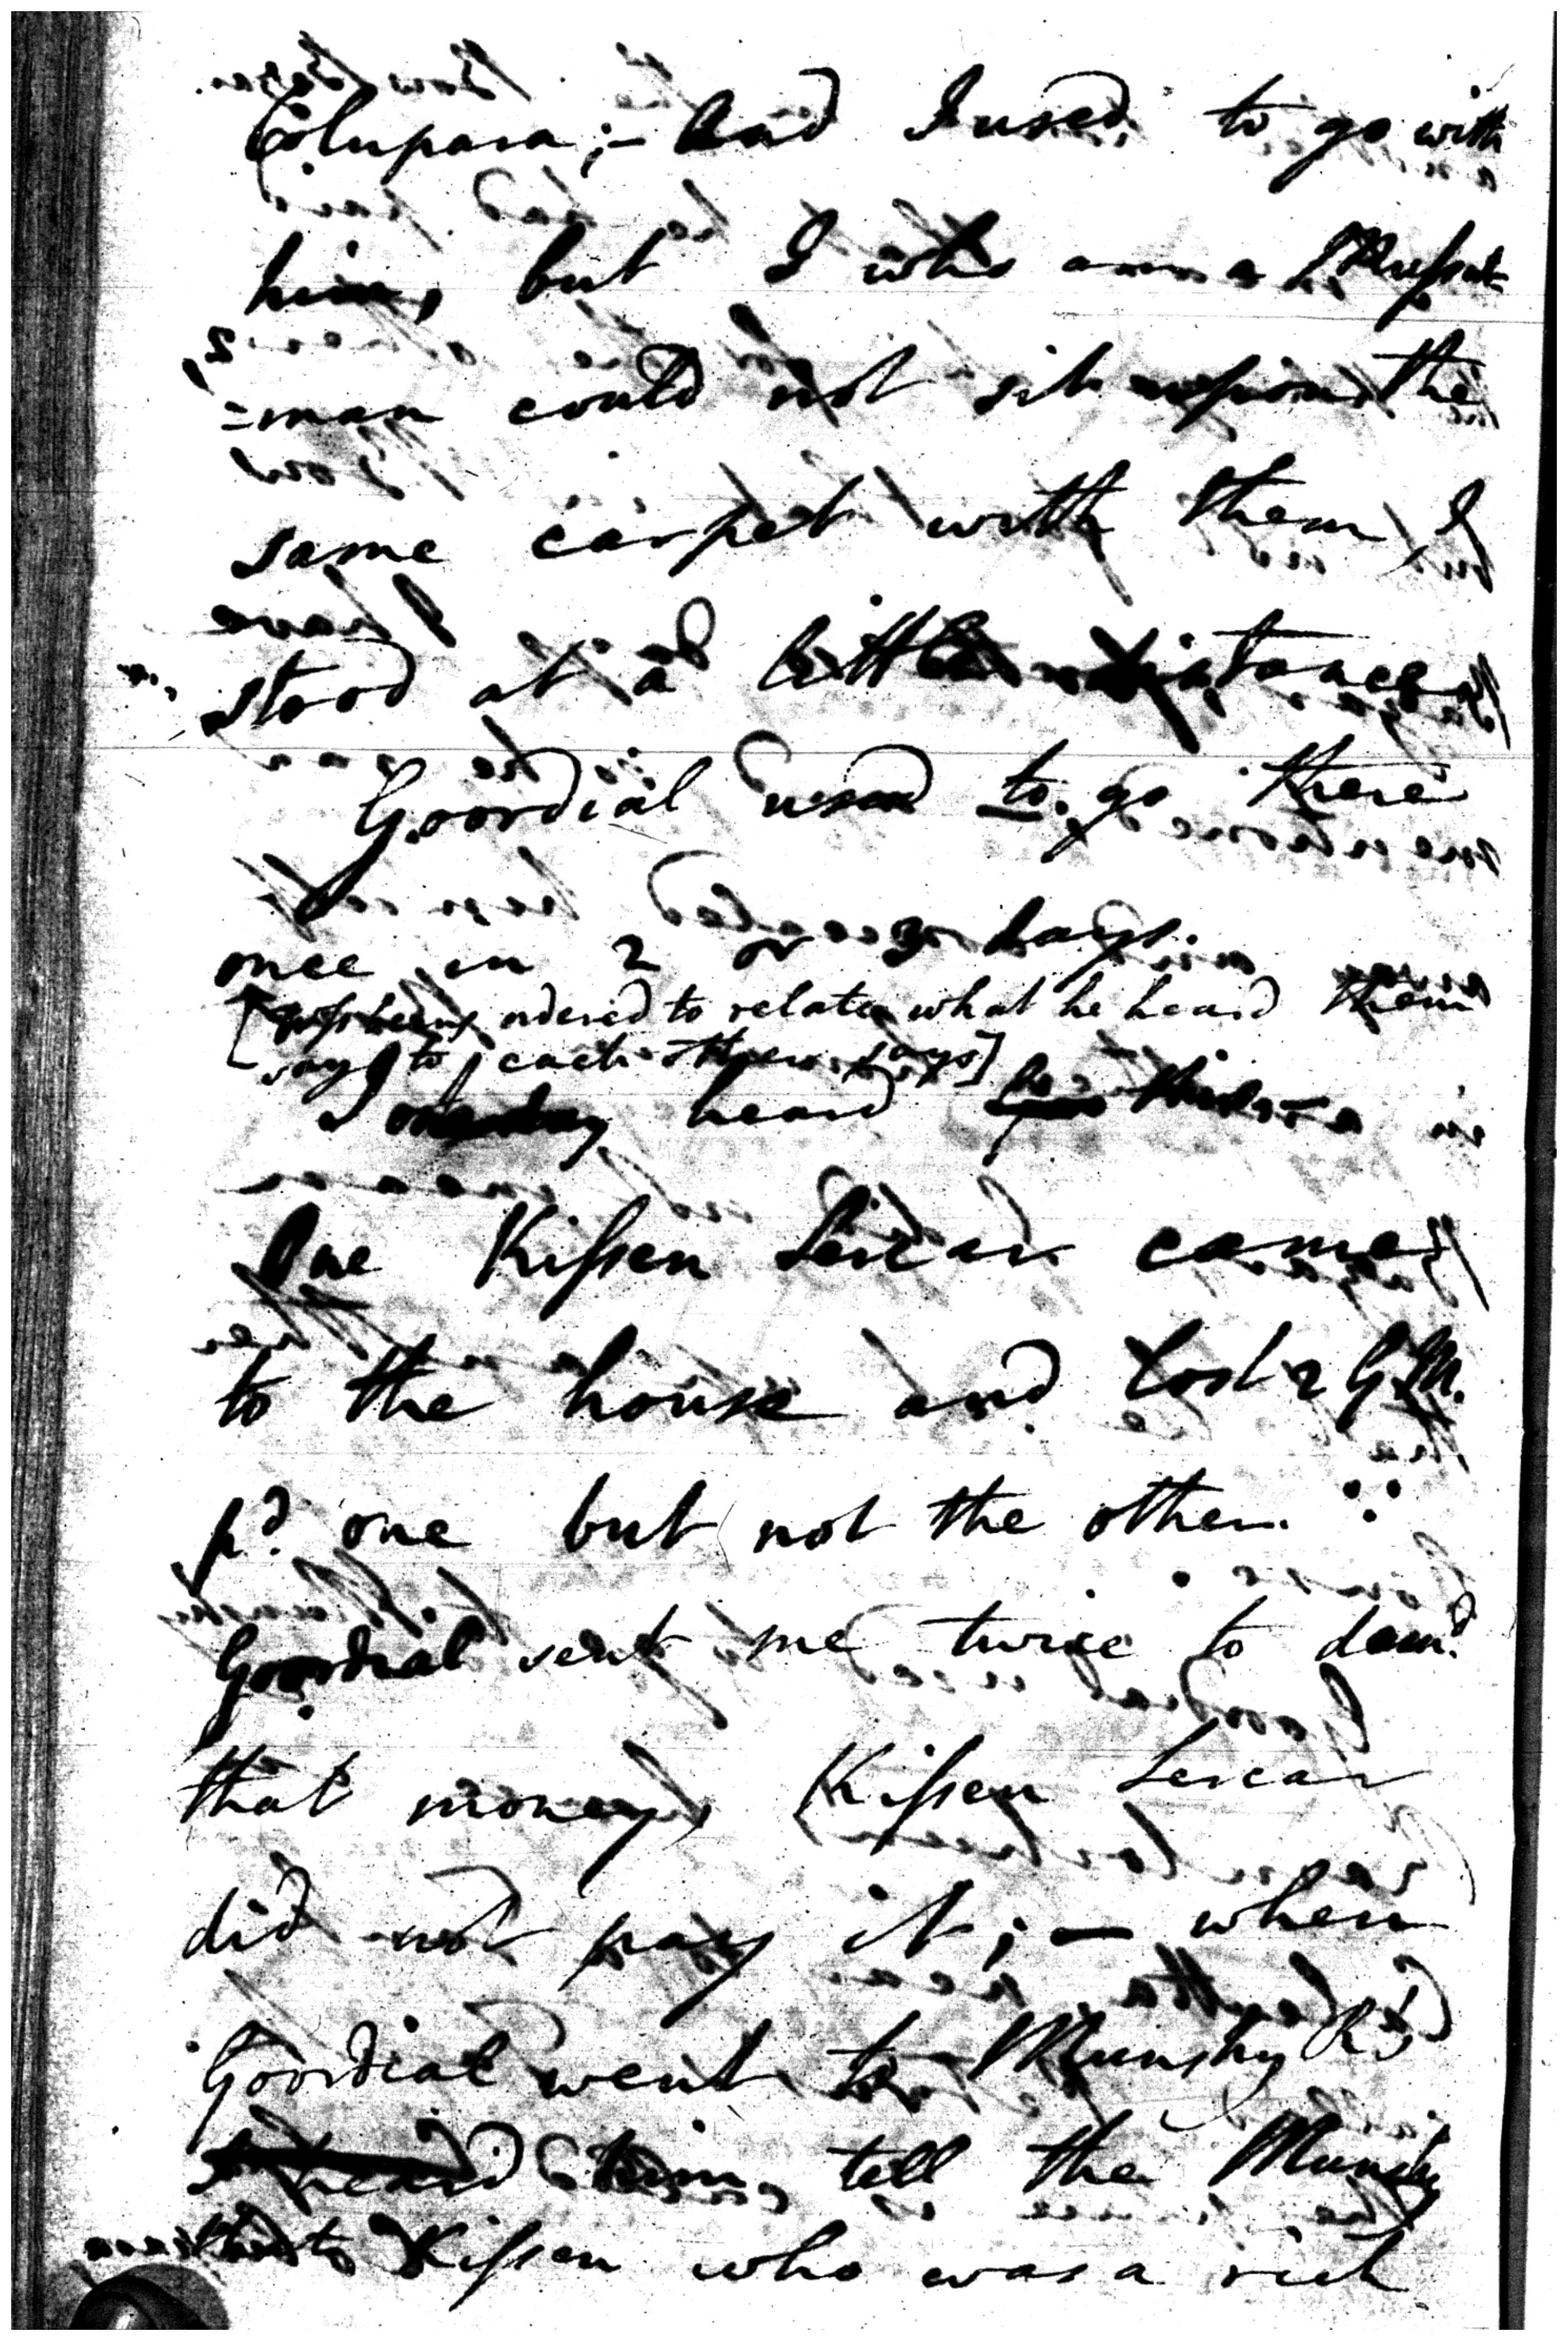 Colupara;- And I used to go with
him, but I who am a Mussul-
=man could not sit upon the
same carpet with them, I
stood at a little distance
Goordial used to go there
once in 2 or 3 days.
[ordered to relate what he heard them
say to each other says]
I one day heard
One Kissen Sircar came
to the house and lost 2 G.M.
pd. one but not the other.
Goordial sent me twice to demd.
that money, Kissen Sercar
did not pay it;- when
Goordial went to Munshy
I heard him tell the Munshy
that Kissen who was a rich